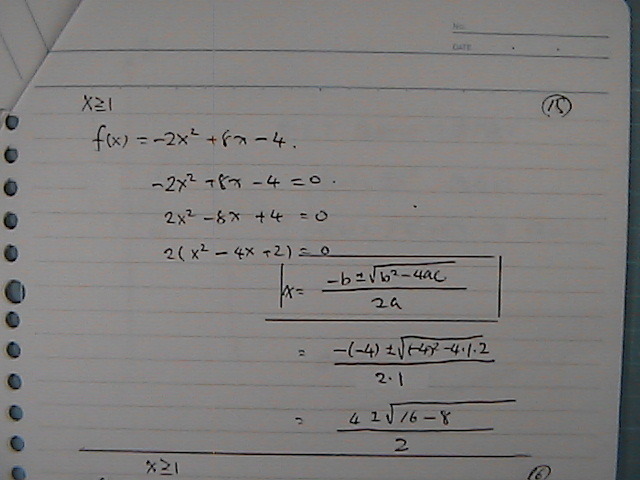 NO.
DATE
x≧1 ⑮
f(x) = -2x² + 8x - 4.
-2x² + 8x - 4 = 0.
2x² - 8x + 4 = 0
2(x² - 4x + 2) = 0
x = \frac{-b ± √(b² - 4ac)}{2a}
= \frac{-(-4) ± √((-4)² - 4·1·2)}{2·1}
= \frac{4 ± √(16 - 8)}{2}
x≧1